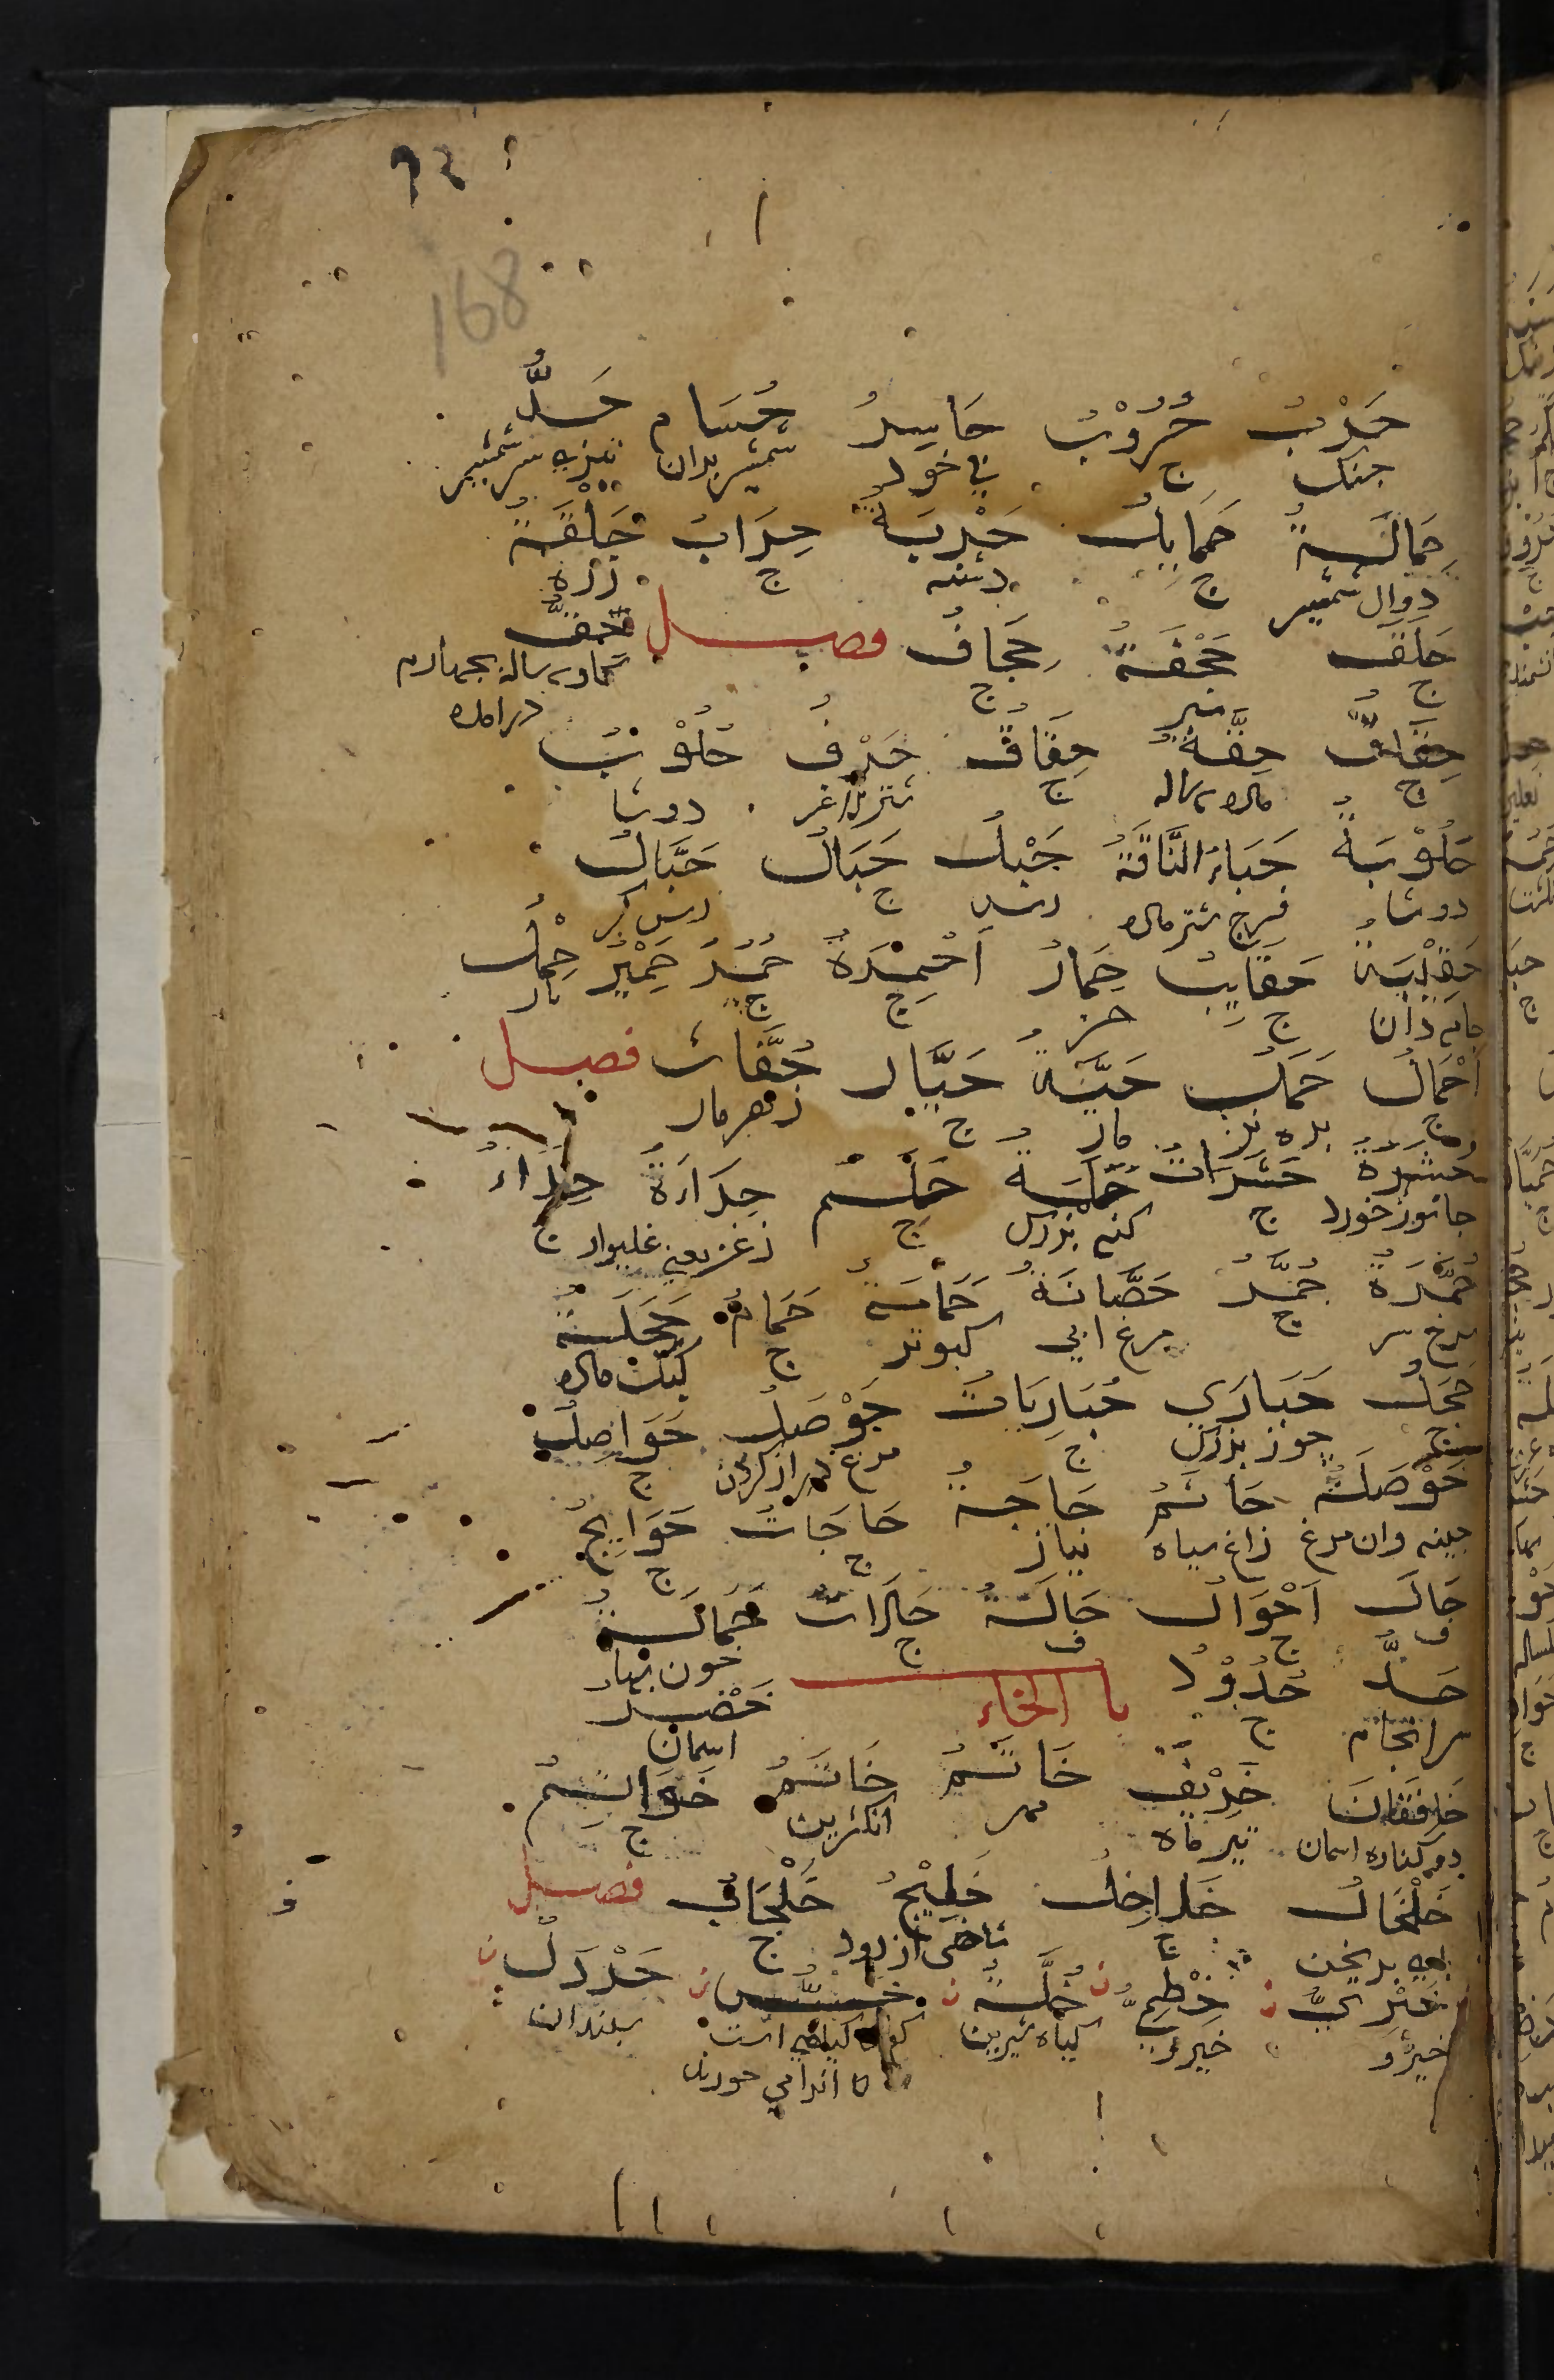 168
حَرْبٌ حُرُوْبٌ حَاسِرٌ حُسَام حَدٌّ
جنك ج بی خود شمشیر بران تیزی سر شمشیر
حِمَالَةٌ حَمَایِلُ حَرْبَةٌ حِرَابٌ حَلْقَةٌ
دوال شمشیر ج دشنه ج زره
حَلَقٌ حَجْفَةٌ حِجَافٌ فصل حِقٌّ
ج سپر ج
درامده
حِقَاقٌ حِقَّةٌ حِقَاقٌ حَرْفٌ حَلُوْبٌ
ج ماده ساله ج شتر لاغر دوشا
حَلُوْبَةٌ حَیَاءُ النَّاقَةُ حَبْلٌ حِبَالٌ حَبَّالٌ
دوشا فرج شتر ماده رسن ج رسن کر
حَقِیْبَةٌ حَقَایِبُ حِمَارٌ اَحْمِرَةٌ حُمُرٌ حَمِیْرٌ حِمْلٌ
جامه دان ج خر ج ج بار
اَحْمَالٌ حَمَلٌ حَیَّةٌ حَیَّات حُمَّات فصل
ج بره نر مار ج زهر مار
حَشَرَةٌ حَشَرَاتٌ حَلَمَةٌ حَلَمٌ حِدَاَةٌ حِدَاءٌ
جانور خورد ج کنه بزرك ج زغن یعنی غلیواز ج
حُمَّرَةٌ حُمَّرٌ حَصَّانَةٌ حَمَامَةٌ حَمَامٌ حَجَلَةٌ
سرخ سر ج مرغ ابی کبوتر ج کبك ماده
حَجَلٌ حُبَارَی حُبَارِیَاتٌ حَوْصَلٌ حَوَاصِلُ
ج جوز بزرك ج مرغ دراز کردن ج
حَوْصَلَةٌ حَاتَمٌ حَاجَةٌ حَاجَاتٌ حَوَایِجُ
چینه دان مرغ زاغ سیاه نیاز ج ج
حَالٌ اَحْوَالٌ حَالَةٌ حَالَاتٌ حَمَالَةٌ
ف ج ف ج خون بها
حَدٌّ حُدُوْدٌ باب الخاء خَضْرَ
سرانجام ج اسمان
خَافِقَانَ خَرِیْفٌ خَاتَمٌ خَاتَمٌ خَوَاتِمُ
دو کناره اسمان تیر ماه مهر انکشرین ج
خَلْخَالٌ خَلَاخِلُ خَلِیْجٌ خُلْجَانٌ فصل
پای برنجن ج شاخی از رود ج
خِیْرِیٌّ خِطْمِیٌّ خُلَّةٌ خَسٌّ خَرْدَلٌ
خیرو خیرو کیاه شیرین کیاهی است سپندان